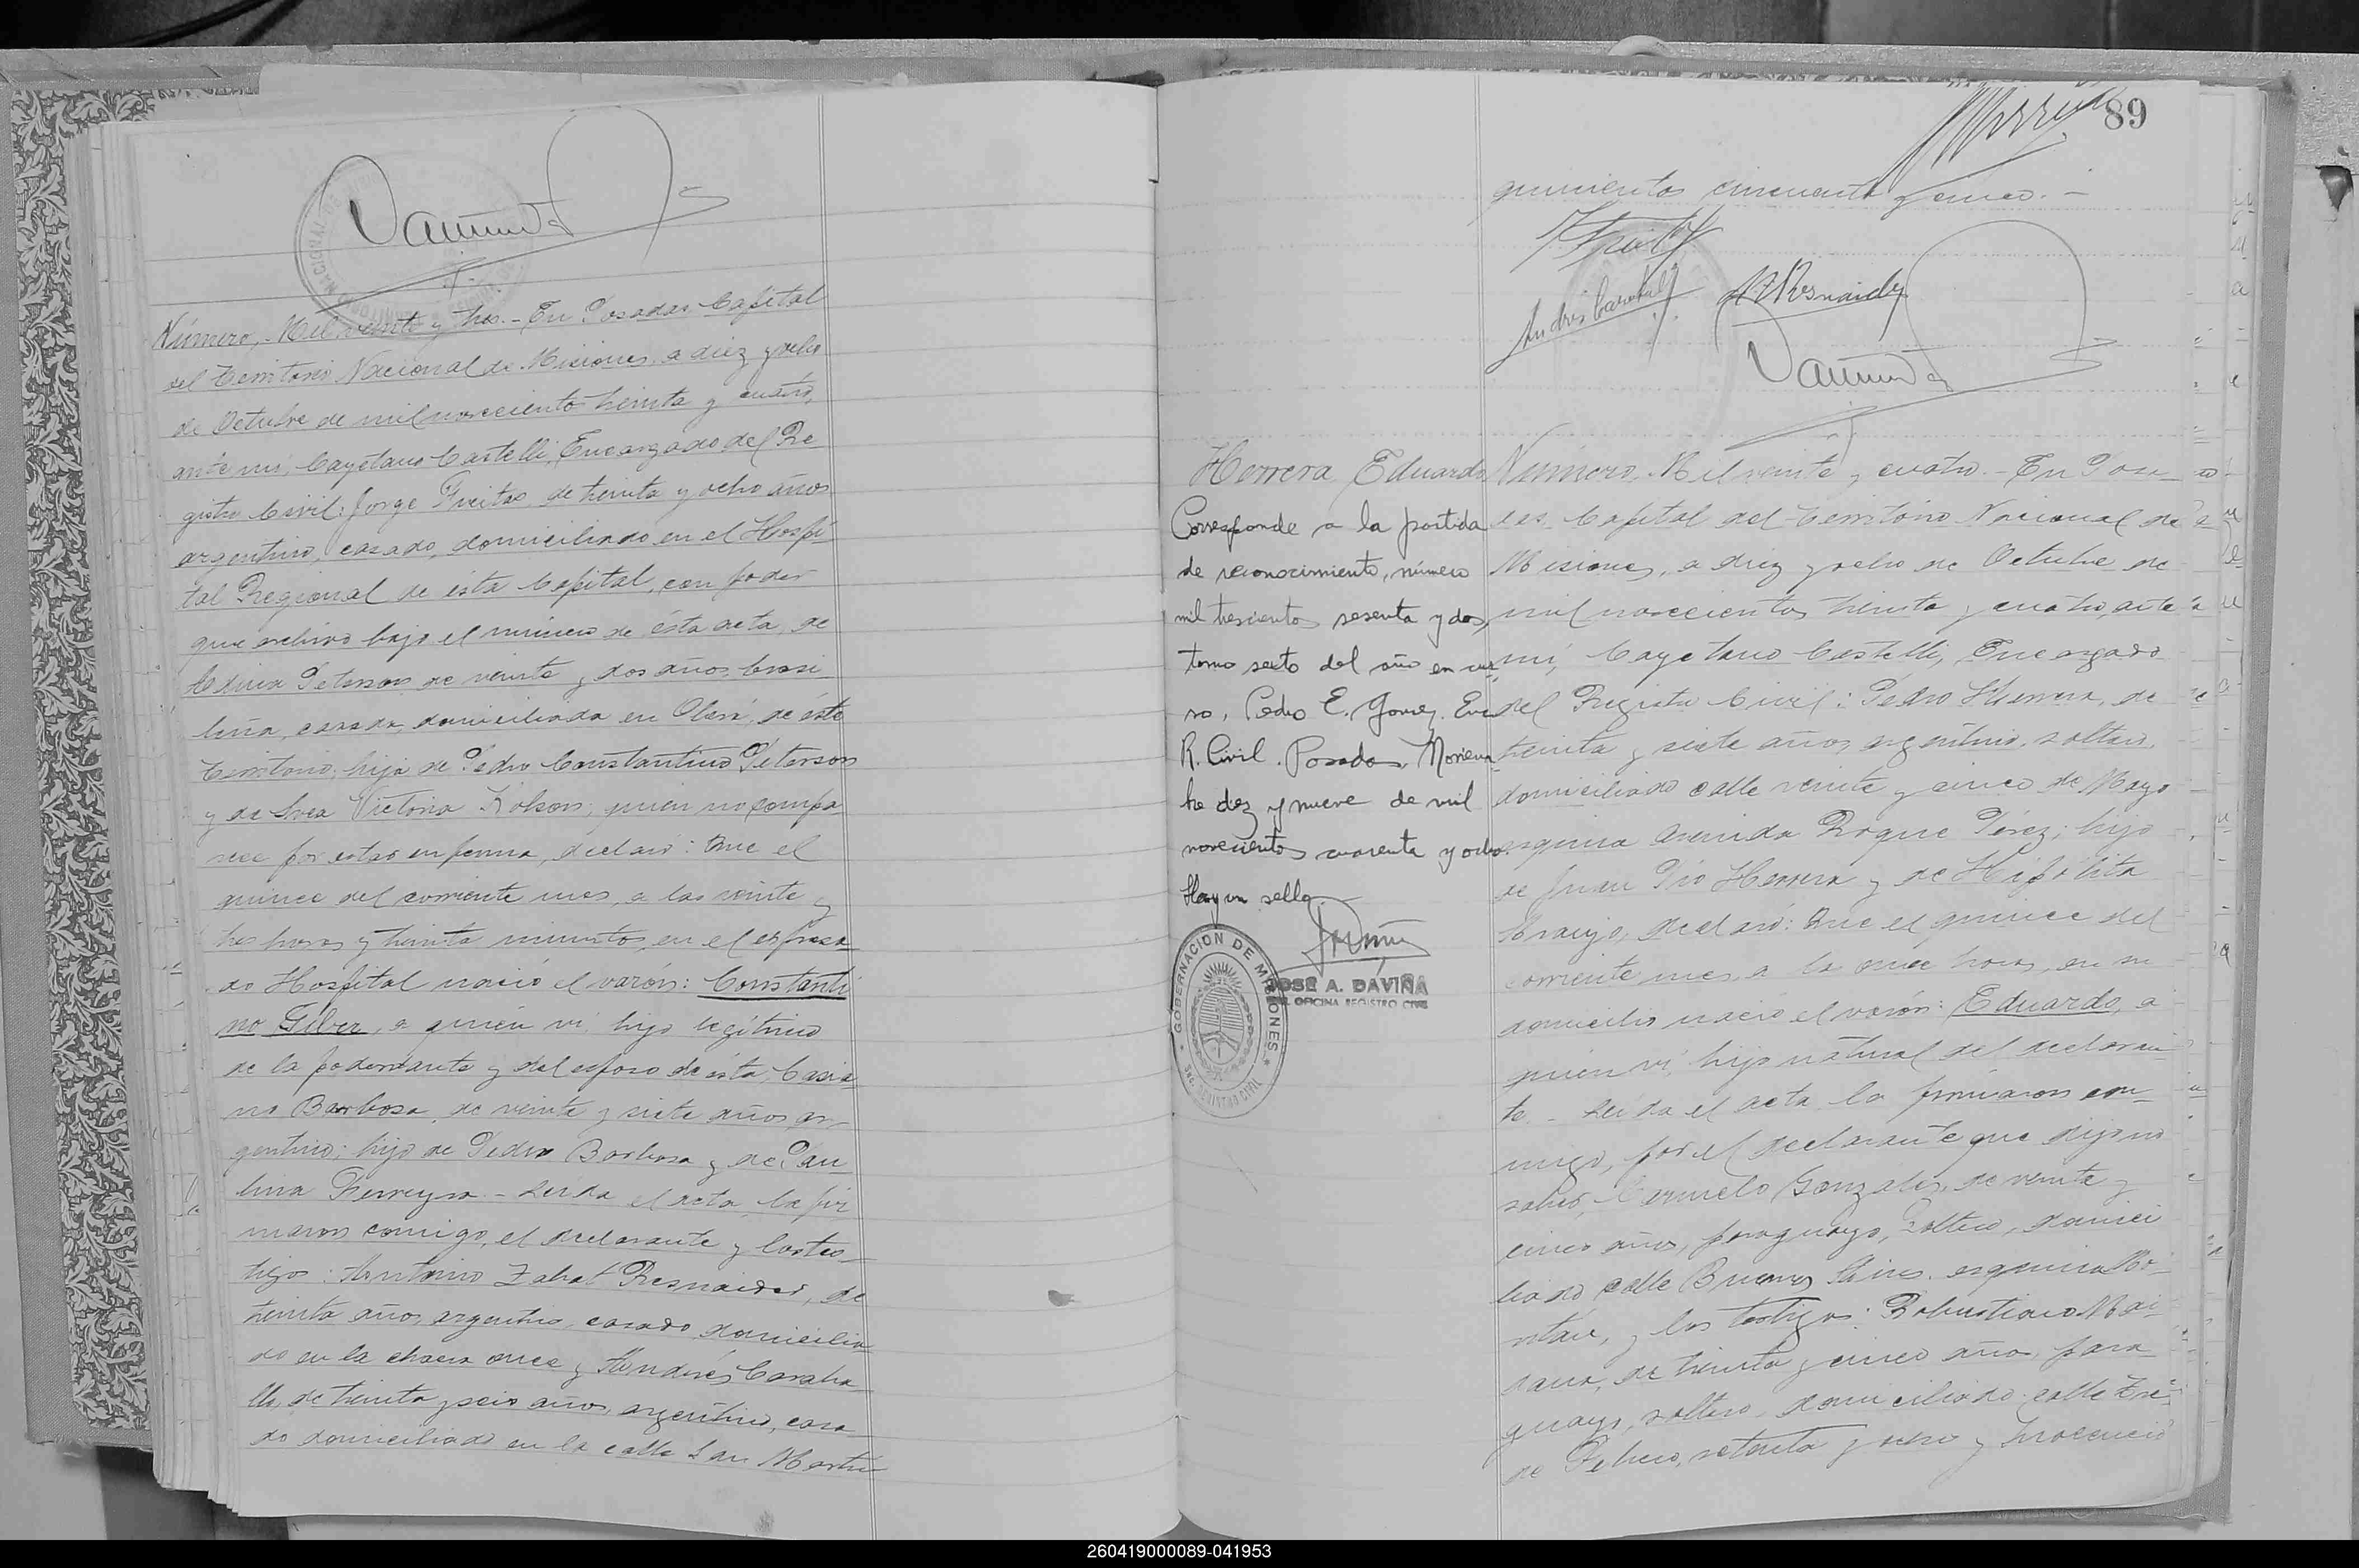 Número, Mil veinte y tres. - En Posadas Capital
del Territorio Nacional de Misiones, a diez y ocho
de Octubre de mil novecientos treinta y cuatro,
ante mi, Cayetano Castelli, Encargado del Re
gistro Civil: Jorge Freitas, de treinta y ocho años
argentino, casado, domiciliado en el Hospi
tal Regional de ésta Capital, con poder
que archivo bajo el número de ésta acta, de
Peterson de veinte y dos años, brasi
leña, casada, domiciliada en Oberá, de éste
Territorio, hija de Pedro Constantino Peterson
y de Victoria quien no compa
rece por estar enferma, declaró: Que el
quince del corriente mes, a las veinte y
tres horas y treinta minutos, en el expresa
do Hospital nació el varón: Constanti
no Giber, a quien vi, hijo legítimo
de la poderdante y del esposo de ésta, Casia
no Barbosa, de veinte y siete años ar
gentino; hijo de Pedro Barbosa y de Pau
lina Ferreyra - Leída el acta, la fir
maron conmigo, el declarante y los tes
tigos: Antonio Resnaider, de
treinta años, argentino, casado domicilia
do en la chacra once y Andrés Caraba
llo, de treinta y seis años, argentino, casa
do domiciliado en la calle San Martín
89
quinientos cincuenta y cinco. -
Herrera Eduardo
Corresponde a la partida
de reconocimiento, número
mil trescientos sesenta y dos,
tomo sexto del año en cur
so, Pedro E. Gomez. Enc
R. Civil. Posadas. Noviem
bre diez y nueve de mil
novecientos cuarenta y ocho.
Hay un sello.
GOBERNACION DE MISIONES
JOSE A. DAVIÑA
OFICINA REGISTRO CIVIL
Número, Mil veinte y cuatro. - En Posa
das Capital del Territorio Nacional de
Misiones, a diez y ocho de Octubre de
mil novecientos treinta y cuatro, ante
mi, Cayetano Castelli, Encargado
del Registro Civil: Pedro Herrera, de
treinta y siete años, argentino, soltero,
domiciliado calle veinte y cinco de Mayo
esquina Avenida Roque Pérez; hijo
de Juan Pío Herrera y de Hipólita
Araujo, declaró: Que el quince del
corriente mes, a las once horas, en su
domicilio nació el varón: Eduardo, a
quien vi, hijo natural del declaran
te. - Leída el acta la firmaron con
migo, por el declarante que dijo no
saber, Carmelo Gonzalez, de veinte y
cinco años, paraguayo, soltero, domici
liado calle Buenos Aires esquina
y los testigos: Robustiano Mai
dana, de treinta y cinco años, para
guayo, soltero, domiciliado calle Tres
de Febrero, setenta y ocho y Inocencio
260419000089-041953